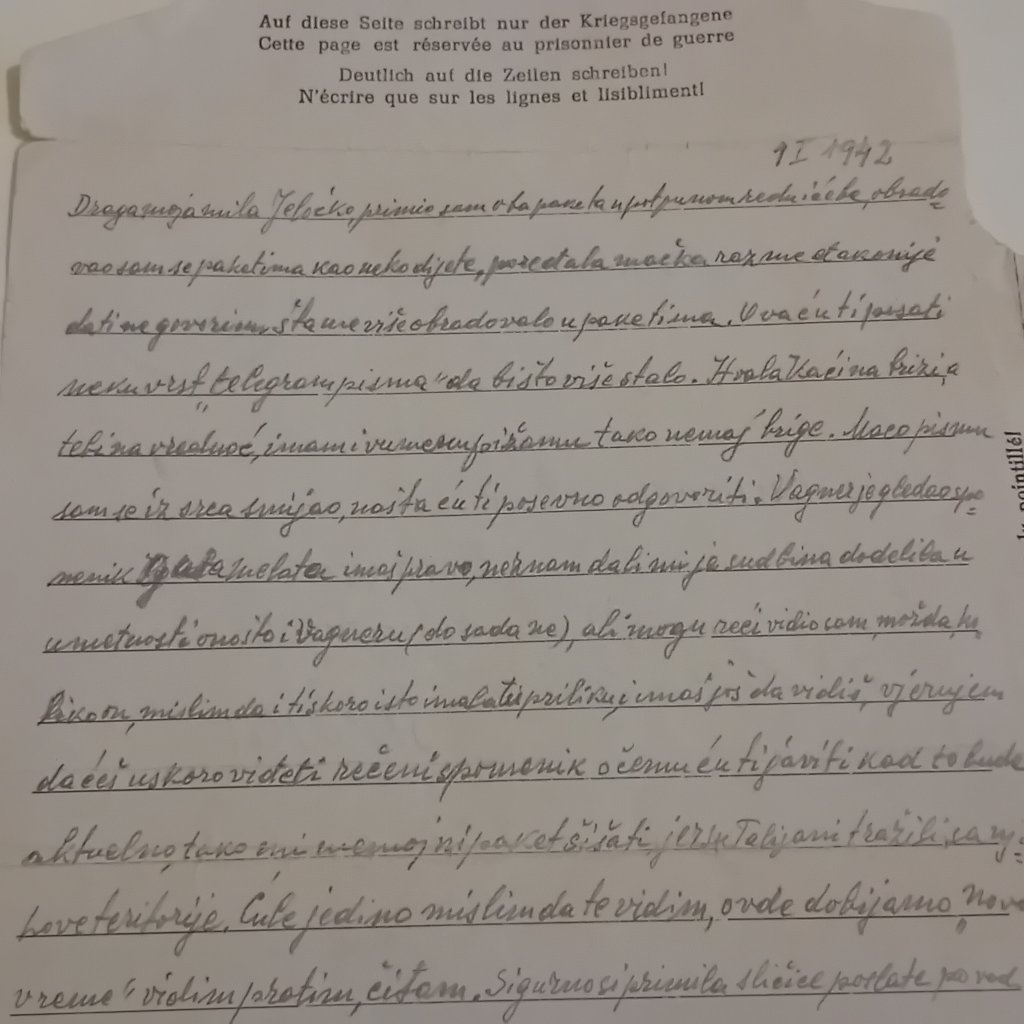 Auf diese Seite schreibt nur der Kriegsgefangene
Cette page est réservée au prisonnier de guerre
Deutlich auf die Zeilen schreiben!
N'écrire que sur les lignes et lisibliment!
9 I 1942
Draga moja mila Jeločko, primio sam oba paketa u potpunom redu i ćebe, obrado=
vao sam se paketima kao neko dijete, mačka razume
da ti ne govorim šta me više obradovalo u paketima. Ova ću ti pisati
neku vrst „telegram pisma" da bi što više stalo. Hvala Kaći na brizi, a
tebi na vrednoć, imam i tako nemaj brige. Maco pismu
sam se iz srca smijao, na šta ću ti posevno odgovoriti. Vagner je gledao spo=
menik imaš pravo, ne znam da li mi je sudbina dodelila u
umetnosti ono što i Vagneru (do sada ne), ali mogu reći vidio sam, možda,
mislim da i ti skoro isto imala tu priliku, i imaš još da vidiš, vjerujem
da ćeš uskoro videti rečeni spomenik o čemu ću ti javiti kad to bude
aktuelno, tako mi nemoj ni paket jer su Talijani tražili sa nji=
hove teritorije. Ćule jedino mislim da te vidim, ovde dobijamo „Novo
vreme" vidim pratim, čitam. Sigurno si primila sličice poslate po
pointillé!